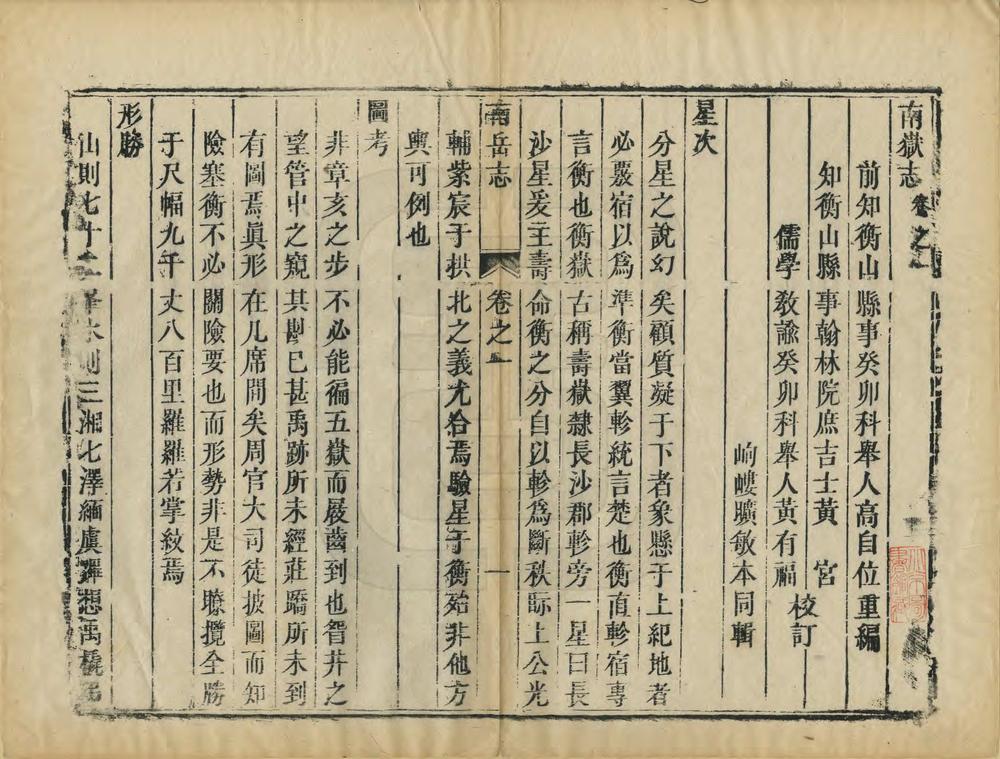 南嶽志卷之一
前知衡山縣事癸卯科舉人高自位重編
知衡山縣事翰林院庶吉士黃 宮
儒學教諭癸卯科舉人黃有福
校訂
岣嶁曠敏本同輯
星次
分星之說幻矣顧質凝于下者象懸于上紀地者
必覈宿以為準衡當翼軫統言楚也衡直軫宿專
言衡也衡嶽古稱壽嶽隸長沙郡軫旁一星曰長
沙星爰主壽命衡之分自以軫為斷秩眎上公光
南岳志 卷之一 一
輔紫宸于拱北之義尤合焉驗星于衡殆非他方
輿可例也
圖考
非章亥之步不必能徧五嶽而屐齒到也眢井之
望管中之窺其尠已甚禹跡所未經莊蹻所未到
有圖焉真形在几席間矣周官大司徒披圖而知
險塞衡不必關險要也而形勢非是不瞭攬全勝
于尺幅九千丈八百里羅羅若掌紋焉
形勝
山則七十二峯水則三湘七澤緬虞禪想禹橇